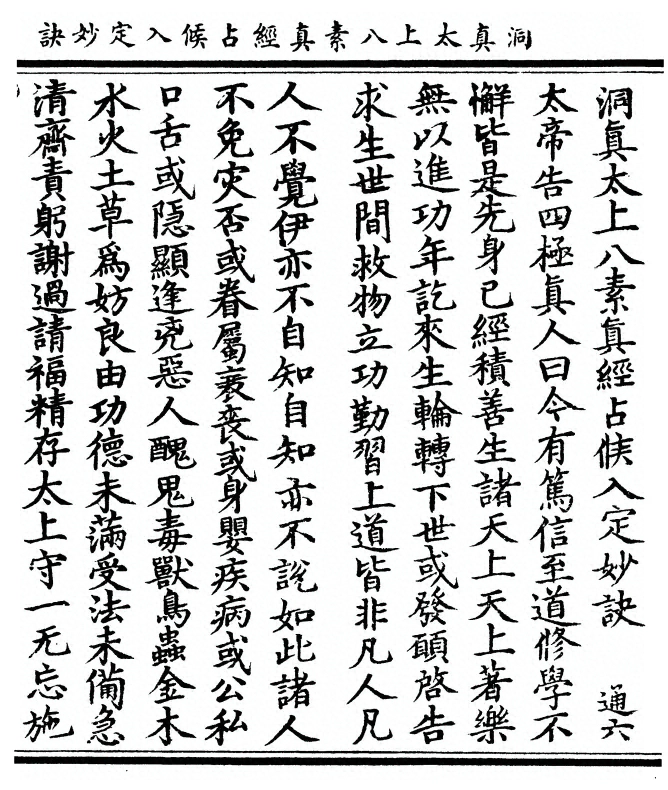 洞真太上八素真經占候入定妙訣
洞真太上八素真經占候入定妙訣 通六
太帝告四極真人曰今有篤信至道修學不
懈皆是先身已經積善生諸天上天上著樂
無以進功年訖來生輪轉下世或發願啓告
求生世間救物立功勤習上道皆非凡人凡
人不覺伊亦不自知自知亦不說如此諸人
不免灾否或眷屬衰喪或身嬰疾病或公私
口舌或隱顯逢兇惡人醜鬼毒獸鳥蟲金木
水火土草為妨良由功德未滿受法未備急
清齋責躬謝過請福精存太上守一无忘施